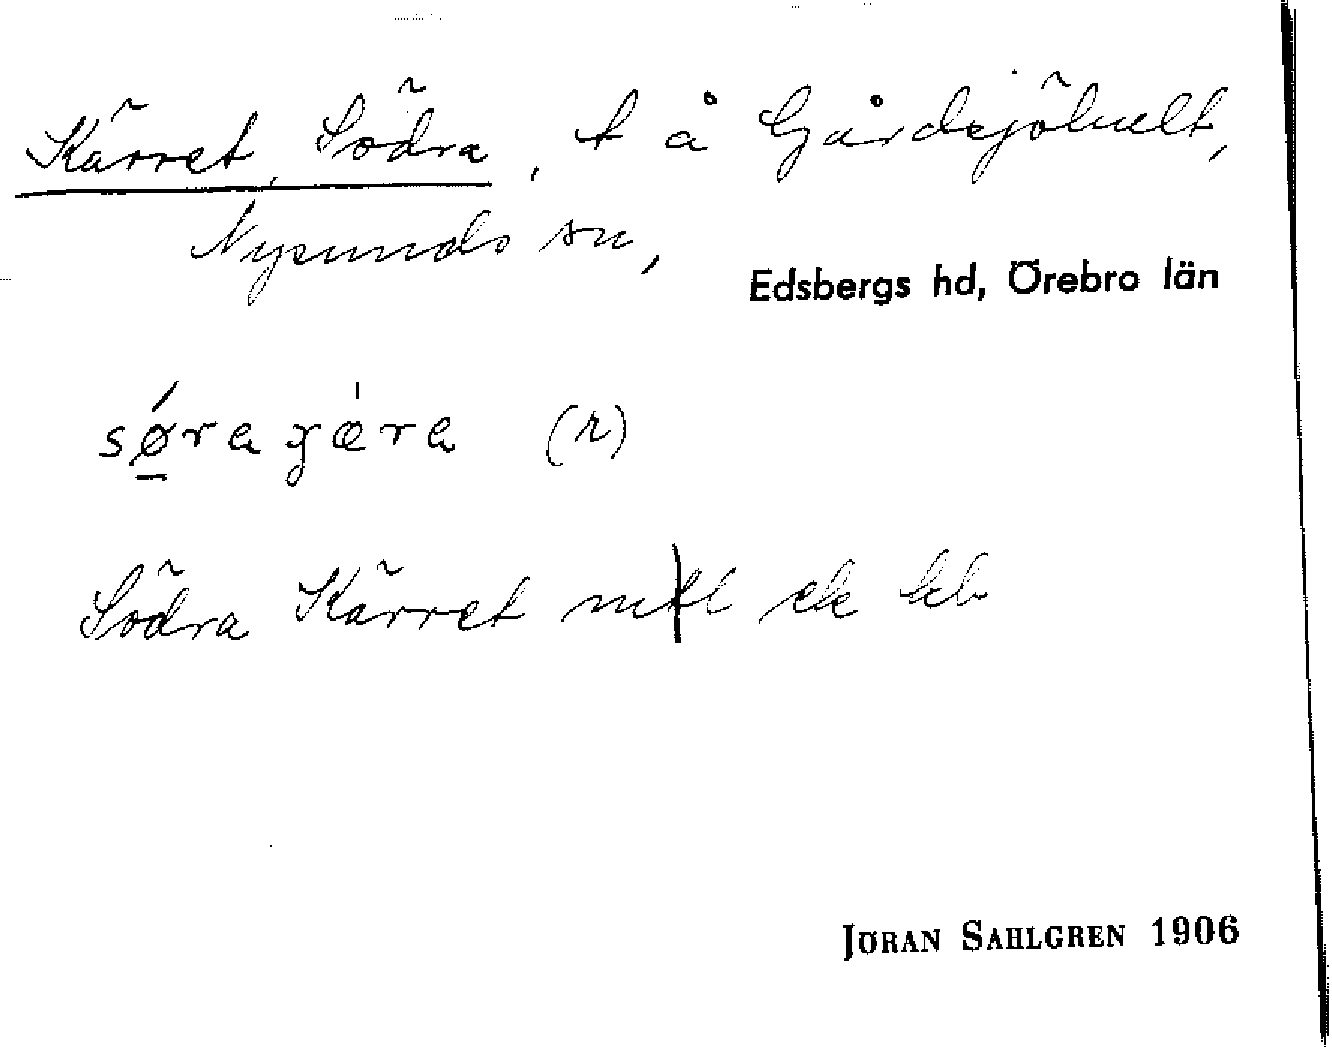 Kärret, Södra, t å Gårdsjöhult,
Nysunds sn,
Edsbergs hd, Örebro län
sǿ̲ra gǽra (r)
Södra Kärret mtl ek kb
JÖRAN SAHLGREN 1906